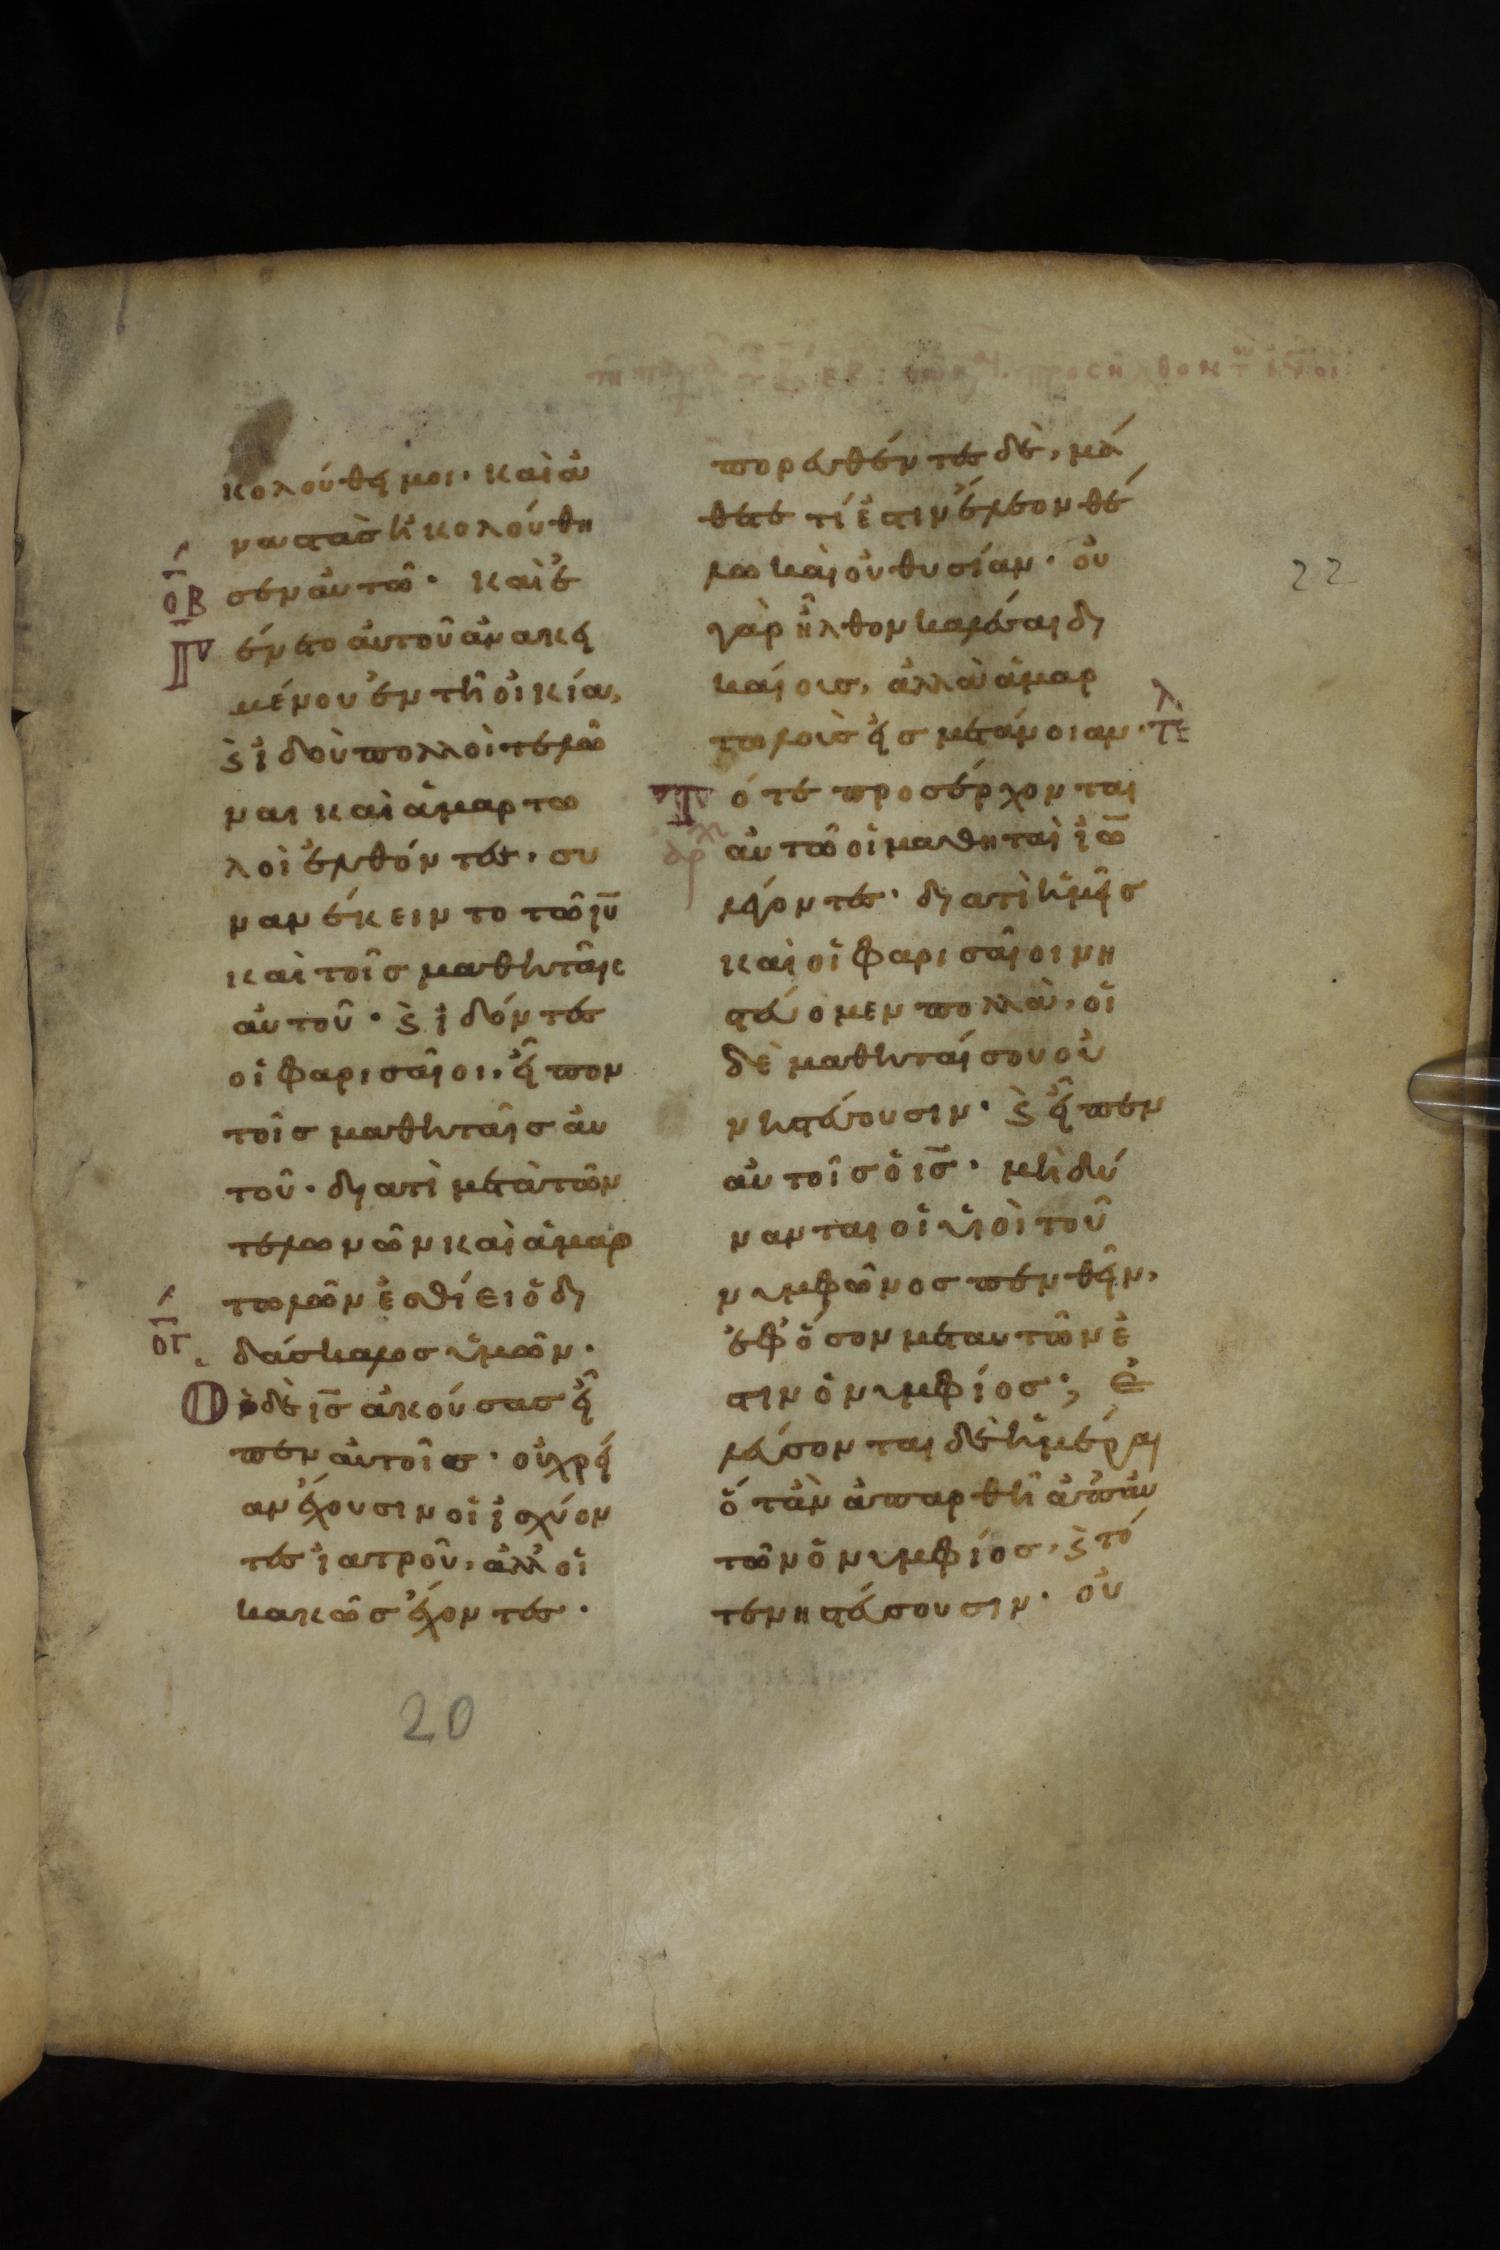 22
κολούθει μοι· καὶ ἀ
ναστὰς ἠκολούθη
σεν αὐτῶ· καὶ ἐ
οβ
γένετο αὐτοῦ ἀνακει
μένου ἐν τῆ οἰκία,
ϗ ἰδοὺ πολλοὶ τελῶ
ναι καὶ ἁμαρτω
λοὶ ἐλθόντες, συ
νανέκειντο τῶ ιυ
καὶ τοῖς μαθηταῖς
αὐτοῦ· ϗ ἰδόντες
οἱ φαρισαῖοι, εἶπον
τοῖς μαθηταῖς αὐ
τοῦ· διατὶ μετὰ τῶν
τελωνῶν καὶ ἁμαρ
τωλῶν ἐσθίει ὁ δι
δάσκαλος ὑμῶν·
ογ
Ὁ δὲ ισ ἀκούσας εἶ
πεν αὐτοῖς· οὐ χρεί
αν ἔχουσιν οἱ ἰσχύον
τες ἰατροῦ, ἀλλ οἱ
κακῶς ἔχοντες·
πορευθέντες δὲ, μά
θετε τί ἐστιν ἔλεον θέ
λω καὶ οὐ θυσίαν· οὐ
γὰρ ἦλθον καλέσαι δι
καίους, ἀλλὰ ἁμαρ
τωλοὺς εἰς μετάνοιαν· τε
Τότε προσέρχονται
αὐτῶ οἱ μαθηταὶ ιω
λέγοντες· διατὶ ἡμεῖς
καὶ οἱ φαρισαῖοι νη
στεύομεν πολλὰ, οἱ
δὲ μαθηταί σου οὐ
νηστεύουσιν· ϗ εἶπεν
αὐτοῖς ὁ ισ· μὴ δύ
νανται οἱ υἱοὶ τοῦ
νυμφῶνος πενθεῖν,
ἐφ ὅσον μετ αυτῶν ἐ
στιν ὁ νυμφίος; ἐ
λεύσονται δὲ ἡμέραι
ὅταν ἀπαρθῆ ἀπ αὐ
τῶν ὁ νυμφίος, ϗ τό
τε νηστεύσουσιν· οὐ
20